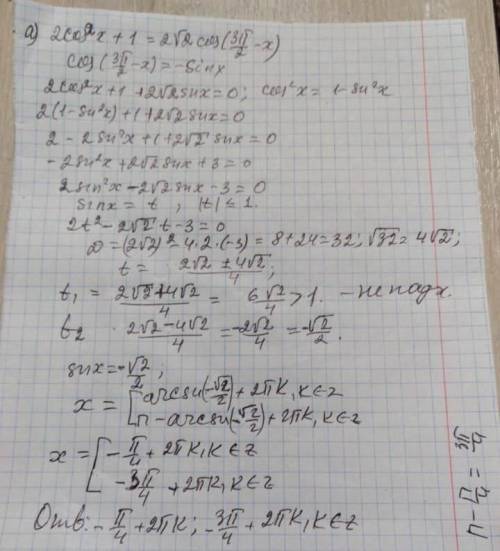 а) 2cos²x + 1 = 2√2 cos(3π/2 - x)
cos(3π/2 - x) = -sinx
2cos²x + 1 + 2√2 sinx = 0; cos²x = 1 - sin²x
2(1 - sin²x) + 1 + 2√2 sinx = 0
2 - 2sin²x + 1 + 2√2 sinx = 0
- 2sin²x + 2√2 sinx + 3 = 0
2sin²x - 2√2 sinx - 3 = 0
sinx = t , |t| ≤ 1.
2t² - 2√2 t - 3 = 0
D = (2√2)² - 4·2·(-3) = 8 + 24 = 32; √32 = 4√2;
t = (2√2 ± 4√2)/4;
t₁ = (2√2 + 4√2)/4 = 6√2/4 > 1. - не подх.
t₂ (2√2 - 4√2)/4 = -2√2/4 = -√2/2.
sinx = -√2/2;
x = [ arcsin(-√2/2) + 2πK, K ∈ Z
π - arcsin(-√2/2) + 2πK, K ∈ Z
x = [ -π/4 + 2πK, K ∈ Z
-3π/4 + 2πK, K ∈ Z
Отв: -π/4 + 2πK; -3π/4 + 2πK, K ∈ Z
π - π/4 = 3π/4